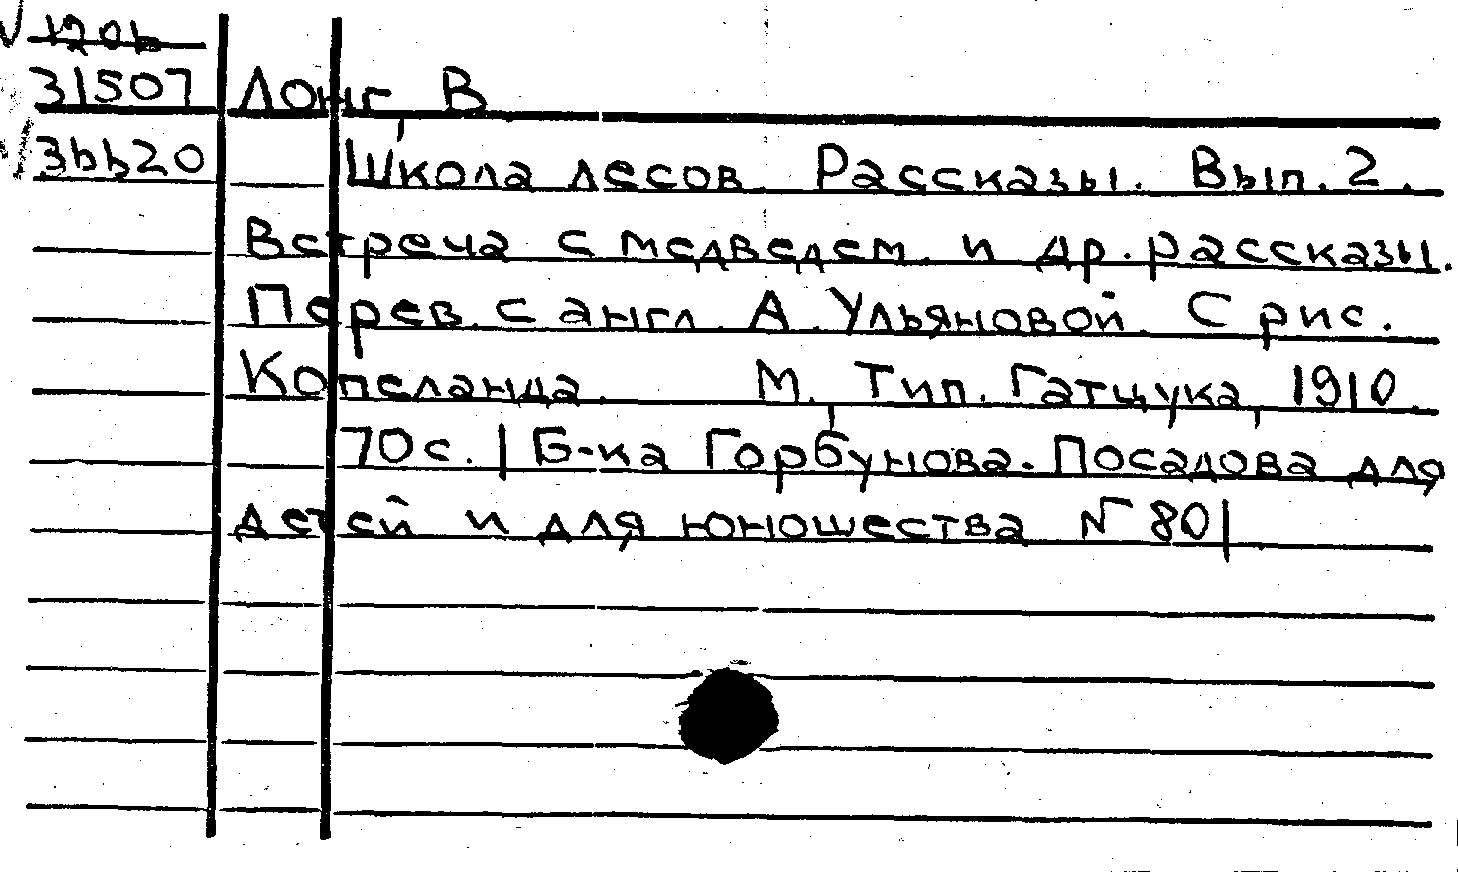 31507 Лонг, В
36620 Школа лесов. Рассказы. Вып. 2.
Встреча с медведем. и др. рассказы.
Перев. с англ. А. Ульяновой. С рис.
Копеланда. М., Тип. Гатцука, 1910.
70с. | Б-ка Горбунова-Посадова для
детей и для юношества № 80|